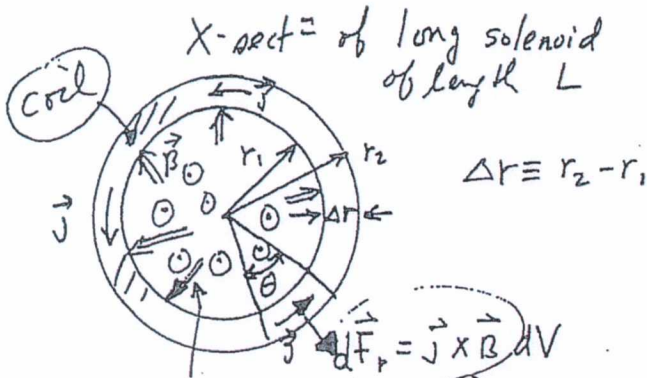 X-sect= of long solenoid
of length L
coil
j
B
r₁
r₂
Δr ≡ r₂ - r₁
j
Δr
θ
j
dFᵣ = j x B dV